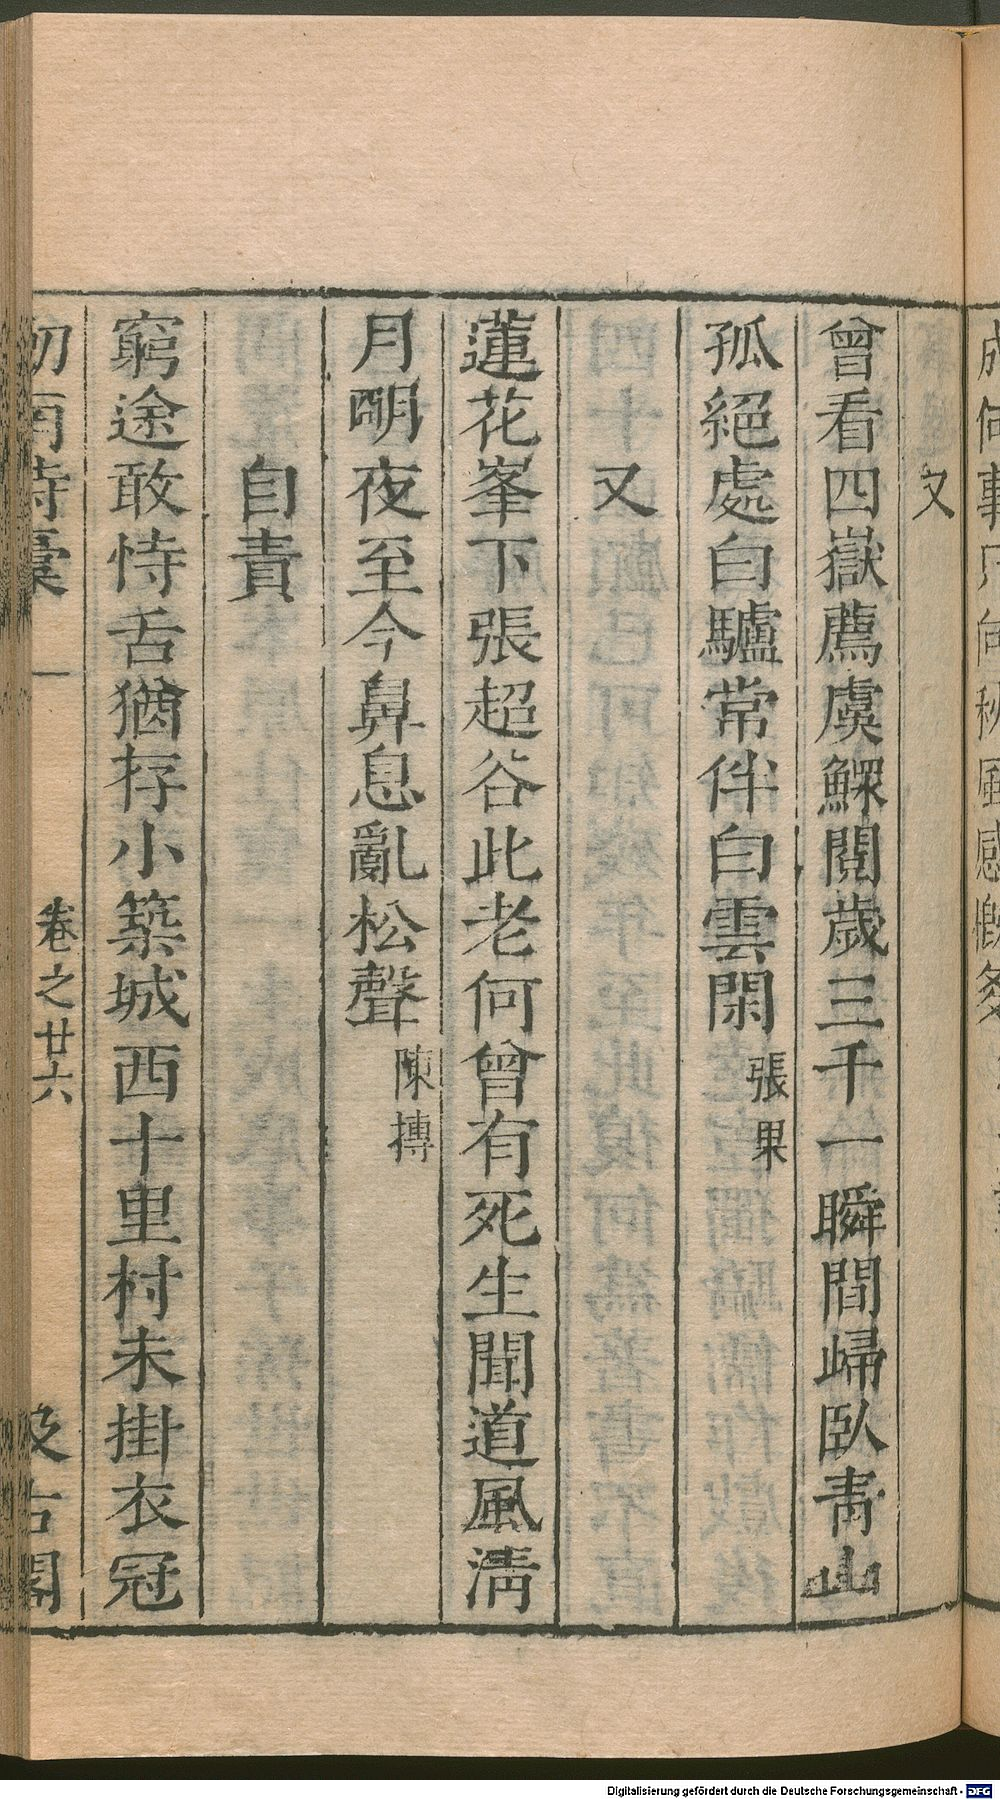 又
曾看四嶽薦虞鰥閱歲三千一瞬間歸臥青山
孤絕處白驢常伴白雲閑張果
又
蓮花峯下張超谷此老何曾有死生聞道風淸
月明夜至今鼻息亂松聲陳摶
自責
窮途敢恃舌猶存小築城西十里村未掛衣冠
劒南詩稾 卷之廿六 汲古閣
Digitalisierung gefördert durch die Deutsche Forschungsgemeinschaft - DFG